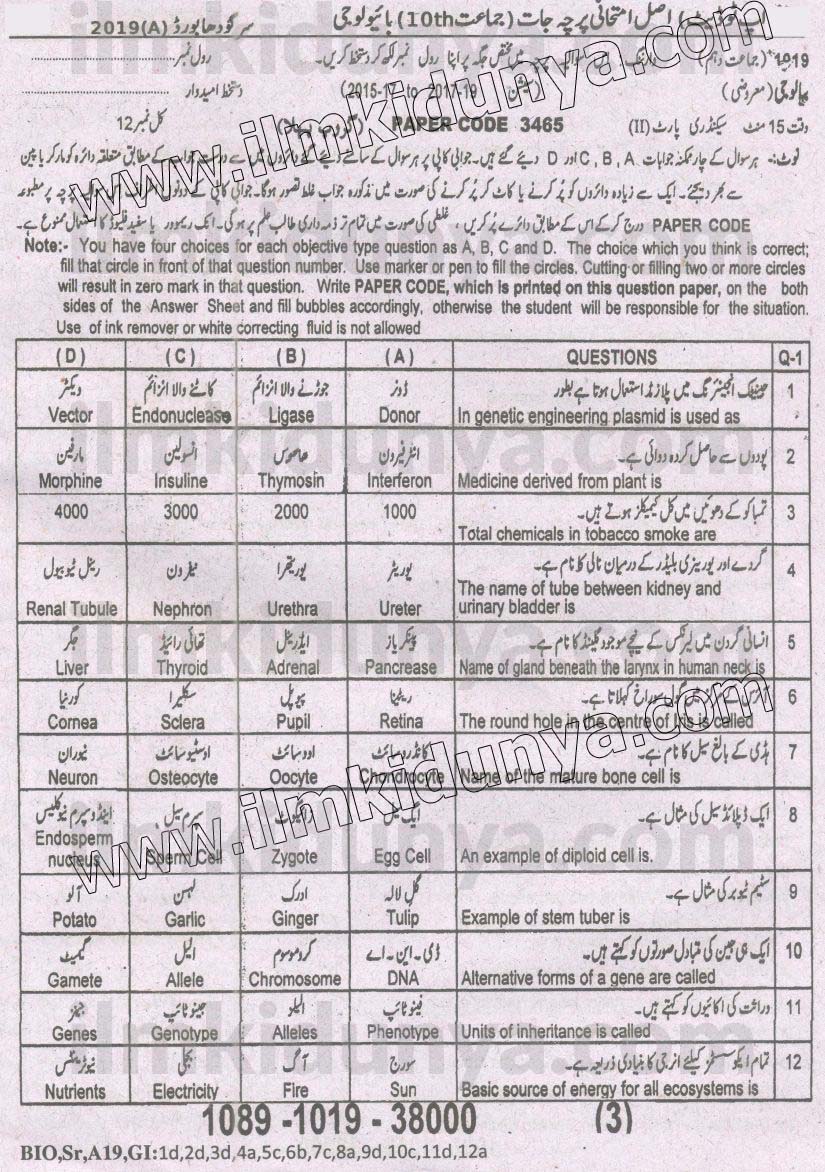 اپ ٹو ڈیٹ) اصل امتحانی پرچہ جات (جماعت 10th) بائیولوجی سرگودھا بورڈ 2019(A)
1019 (جماعت دہم) رول نمبر لکھ کر دستخط کریں۔ رول نمبر
بیالوجی (معروضی) (سیشن 2015-17 to 2017-19) دستخط امیدوار
وقت 15 منٹ سیکنڈری پارٹ (II) PAPER CODE 3465 کل نمبر 12
نوٹ:- ہر سوال کے چار ممکنہ جوابات A ، B ، C اور D دیئے گئے ہیں۔ جوابی کاپی پر ہر سوال کے سامنے دیئے گئے دائروں میں سے درست جواب کے مطابق متعلقہ دائرہ کو مارکر یا پین
سے بھر دیجئے۔ ایک سے زیادہ دائروں کو پُر کرنے یا کاٹ کر پُر کرنے کی صورت میں مذکورہ جواب غلط تصور ہوگا۔ جوابی کاپی کے دونوں اطراف اس سوالیہ پرچہ پر مطبوعہ
PAPER CODE درج کر کے اس کے مطابق دائرے پُر کریں، غلطی کی صورت میں تمام تر ذمہ داری طالب علم پر ہوگی۔ انک ریموور یا سفید فلیوڈ کا استعمال ممنوع ہے۔
Note:- You have four choices for each objective type question as A, B, C and D. The choice which you think is correct;
fill that circle in front of that question number. Use marker or pen to fill the circles. Cutting or filling two or more circles
will result in zero mark in that question. Write PAPER CODE, which is printed on this question paper, on the both
sides of the Answer Sheet and fill bubbles accordingly, otherwise the student will be responsible for the situation.
Use of ink remover or white correcting fluid is not allowed
(D) (C) (B) (A) QUESTIONS Q-1
ویکٹر کاٹنے والا انزائم جوڑنے والا انزائم ڈونر جینیٹک انجینئرنگ میں پلازمڈ استعمال ہوتا ہے بطور 1
Vector Endonuclease Ligase Donor In genetic engineering plasmid is used as
مارفین انسولین تھائموسن انٹرفیرون پودوں سے حاصل کردہ دوائی ہے۔ 2
Morphine Insuline Thymosin Interferon Medicine derived from plant is
4000 3000 2000 1000 تمباکو کے دھوئیں میں کل کیمیکلز ہوتے ہیں۔ 3
Total chemicals in tobacco smoke are
رینل ٹیوبیول نیفرون یوریتھرا یوریٹر گردے اور یورینری بلیڈر کے درمیان نالی کا نام ہے۔ 4
Renal Tubule Nephron Urethra Ureter The name of tube between kidney and
urinary bladder is
جگر تھائی رائیڈ ایڈرینل پینکریاز انسانی گردن میں لیرنکس کے نیچے موجود گلینڈ کا نام ہے۔ 5
Liver Thyroid Adrenal Pancrease Name of gland beneath the larynx in human neck is
کورنیا سکلیرا پیوپل ریٹینا گول سوراخ کہلاتا ہے۔ 6
Cornea Sclera Pupil Retina The round hole in the centre of Iris is called
نیوران اوسٹیوسائٹ اووسائٹ کانڈروسائٹ ہڈی کے بالغ سیل کا نام ہے۔ 7
Neuron Osteocyte Oocyte Chondrocyte Name of the mature bone cell is
اینڈوسپرم نیوکلیس سپرم سیل زائیگوٹ ایگ سیل ایک ڈپلائڈ سیل کی مثال ہے۔ 8
Endosperm nucleus Sperm Cell Zygote Egg Cell An example of diploid cell is.
آلو لہسن ادرک گل لالہ سٹیم ٹیوبر کی مثال ہے۔ 9
Potato Garlic Ginger Tulip Example of stem tuber is
گیمیٹ الیل کروموسوم ڈی۔این۔اے ایک ہی جین کی متبادل صورتوں کو کہتے ہیں۔ 10
Gamete Allele Chromosome DNA Alternative forms of a gene are called
جینز جینوٹائپ الیلز فینوٹائپ وراثت کی اکائیوں کو کہتے ہیں۔ 11
Genes Genotype Alleles Phenotype Units of inheritance is called
نیوٹرینٹس بجلی آگ سورج تمام ایکوسسٹمز کیلئے انرجی کا بنیادی ذریعہ ہے۔ 12
Nutrients Electricity Fire Sun Basic source of energy for all ecosystems is
1089 -1019 - 38000 (3)
BIO,Sr,A19,GI:1d,2d,3d,4a,5c,6b,7c,8a,9d,10c,11d,12a
www.ilmkidunya.com
www.ilmkidunya.com
ilmkidunya.com